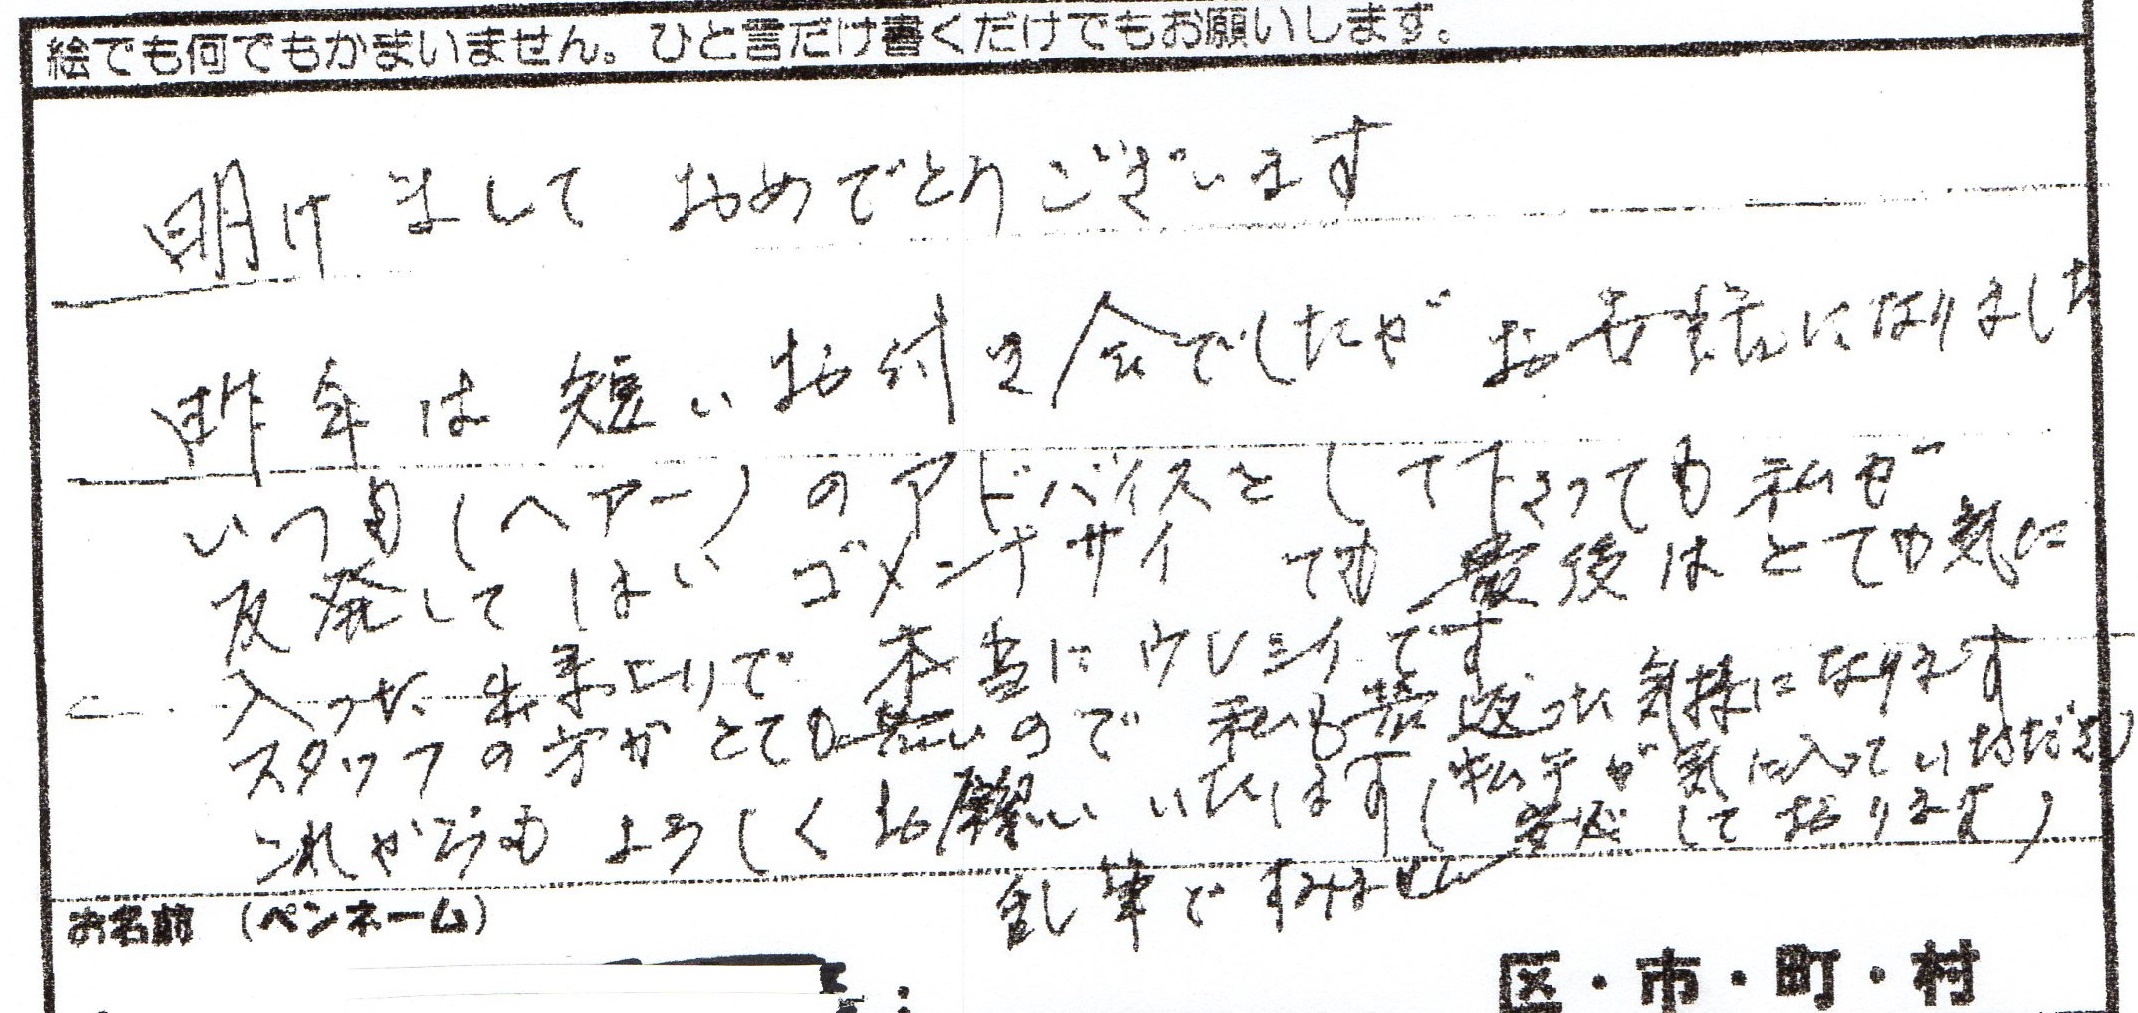 絵でも何でもかまいません。ひと言だけ書くだけでもお願いします。
明けまして おめでとうございます
昨年は 短いお付き合でしたが お世話になりました
いつも(ヘアー)のアドバイスをして下さっても私が
反発してしまい ゴメンナサイ でも 最後はとても気に
入った 仕上りで 本当にウレシイです
スタッフの方がとても若いので 私も若返った気持になります
これからも よろしくお願いいたします(私共が気に入っていただき
感謝しております)
乱筆ですみません
お名前 (ペンネーム)
区・市・町・村